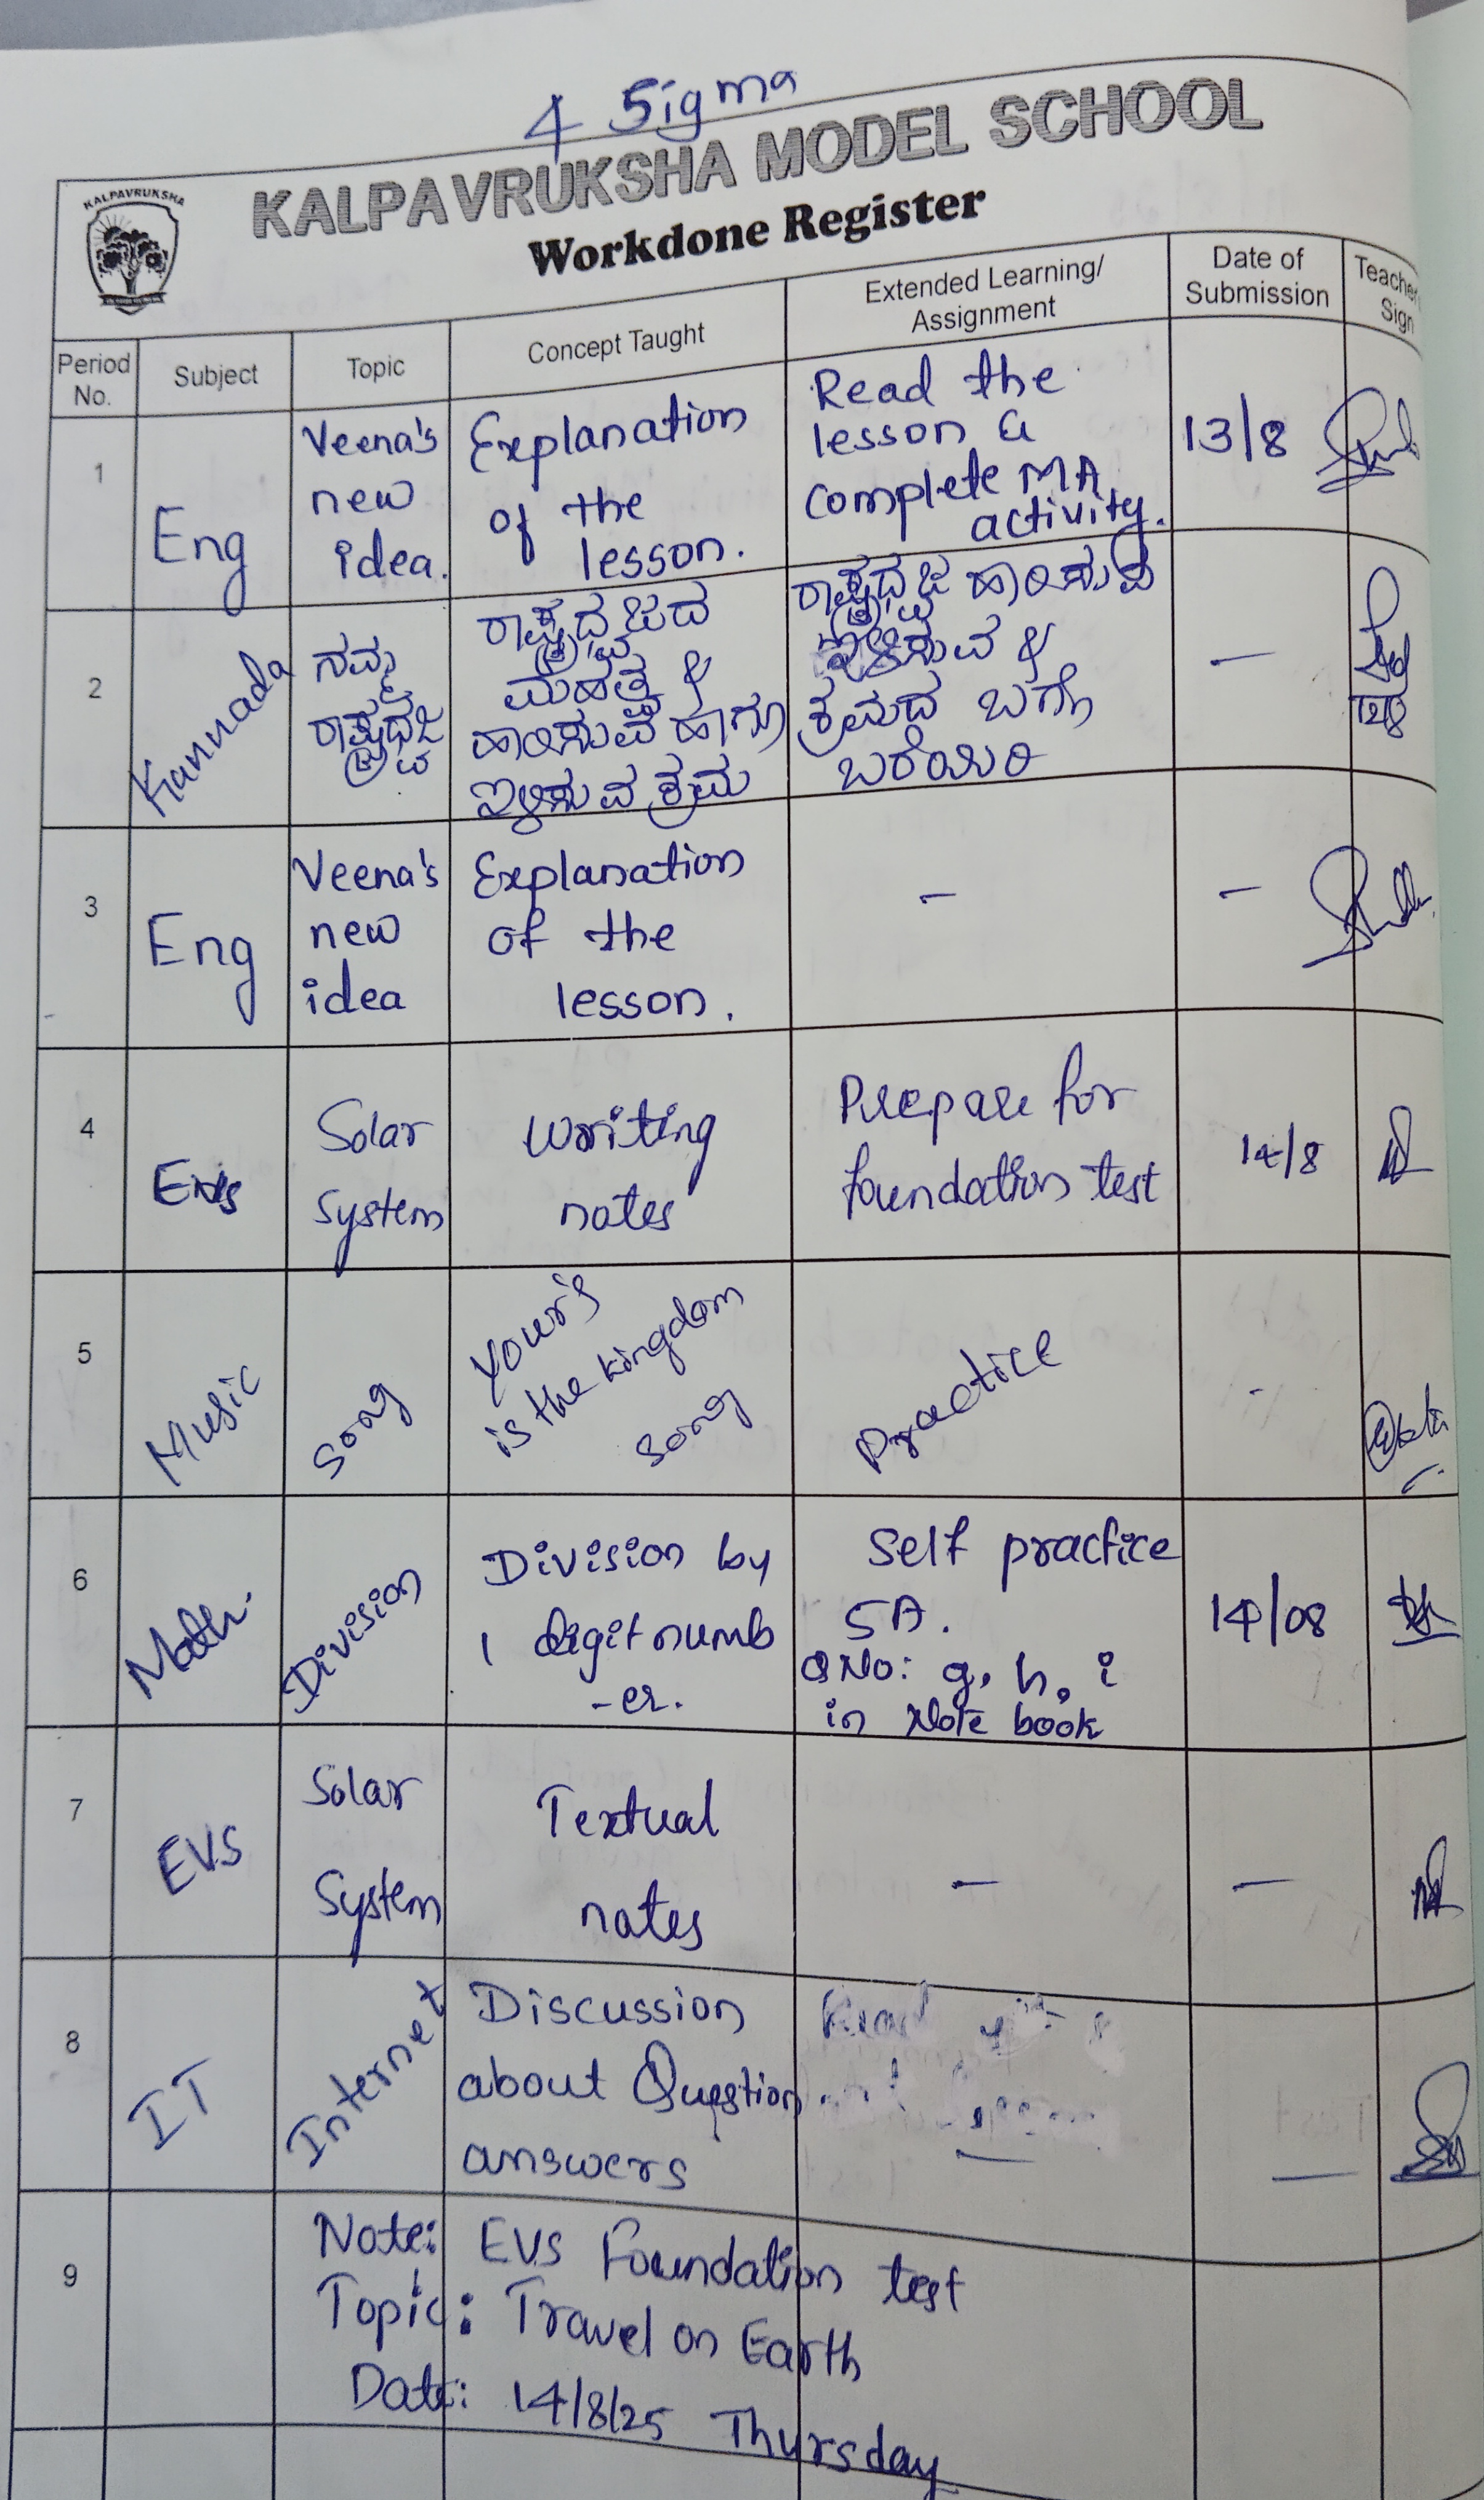 4 Sigma
KALPAVRUKSHA
KALPAVRUKSHA MODEL SCHOOL
Workdone Register
Period No.
Subject
Topic
Concept Taught
Extended Learning/
Assignment
Date of
Submission
Teacher
Sign
1
Eng
Veena's
new
idea.
Explanation
of the
lesson.
Read the
lesson &
complete MA
activity.
13/8
2
Kannada
ನಮ್ಮ
ರಾಷ್ಟ್ರಧ್ವಜ
ರಾಷ್ಟ್ರಧ್ವಜದ
ಮಹತ್ವ &
ಹಾರಿಸುವ ಹಾಗೂ
ಇಳಿಸುವ ಕ್ರಮ
ರಾಷ್ಟ್ರಧ್ವಜ ಹಾರಿಸುವ
ಇಳಿಸುವ &
ಕ್ರಮದ ಬಗ್ಗೆ
ಬರೆಯಿರಿ
—
3
Eng
Veena's
new
idea
Explanation
of the
lesson.
-
-
4
Evs
Solar
System
Writing
notes
Prepare for
foundation test
14/8
5
Music
Song
Your's
is the kingdom
song
Practice
-
6
Math.
Division
Division by
1 digit numb
-er.
Self practice
5A.
QNo: g, h, i
in Note book
14/08
7
EVS
Solar
System
Textual
notes
—
—
8
IT
Internet
Discussion
about Question
answers
—
—
9
Note: EVS Foundation test
Topic: Travel on Earth
Date: 14/8/25 Thursday